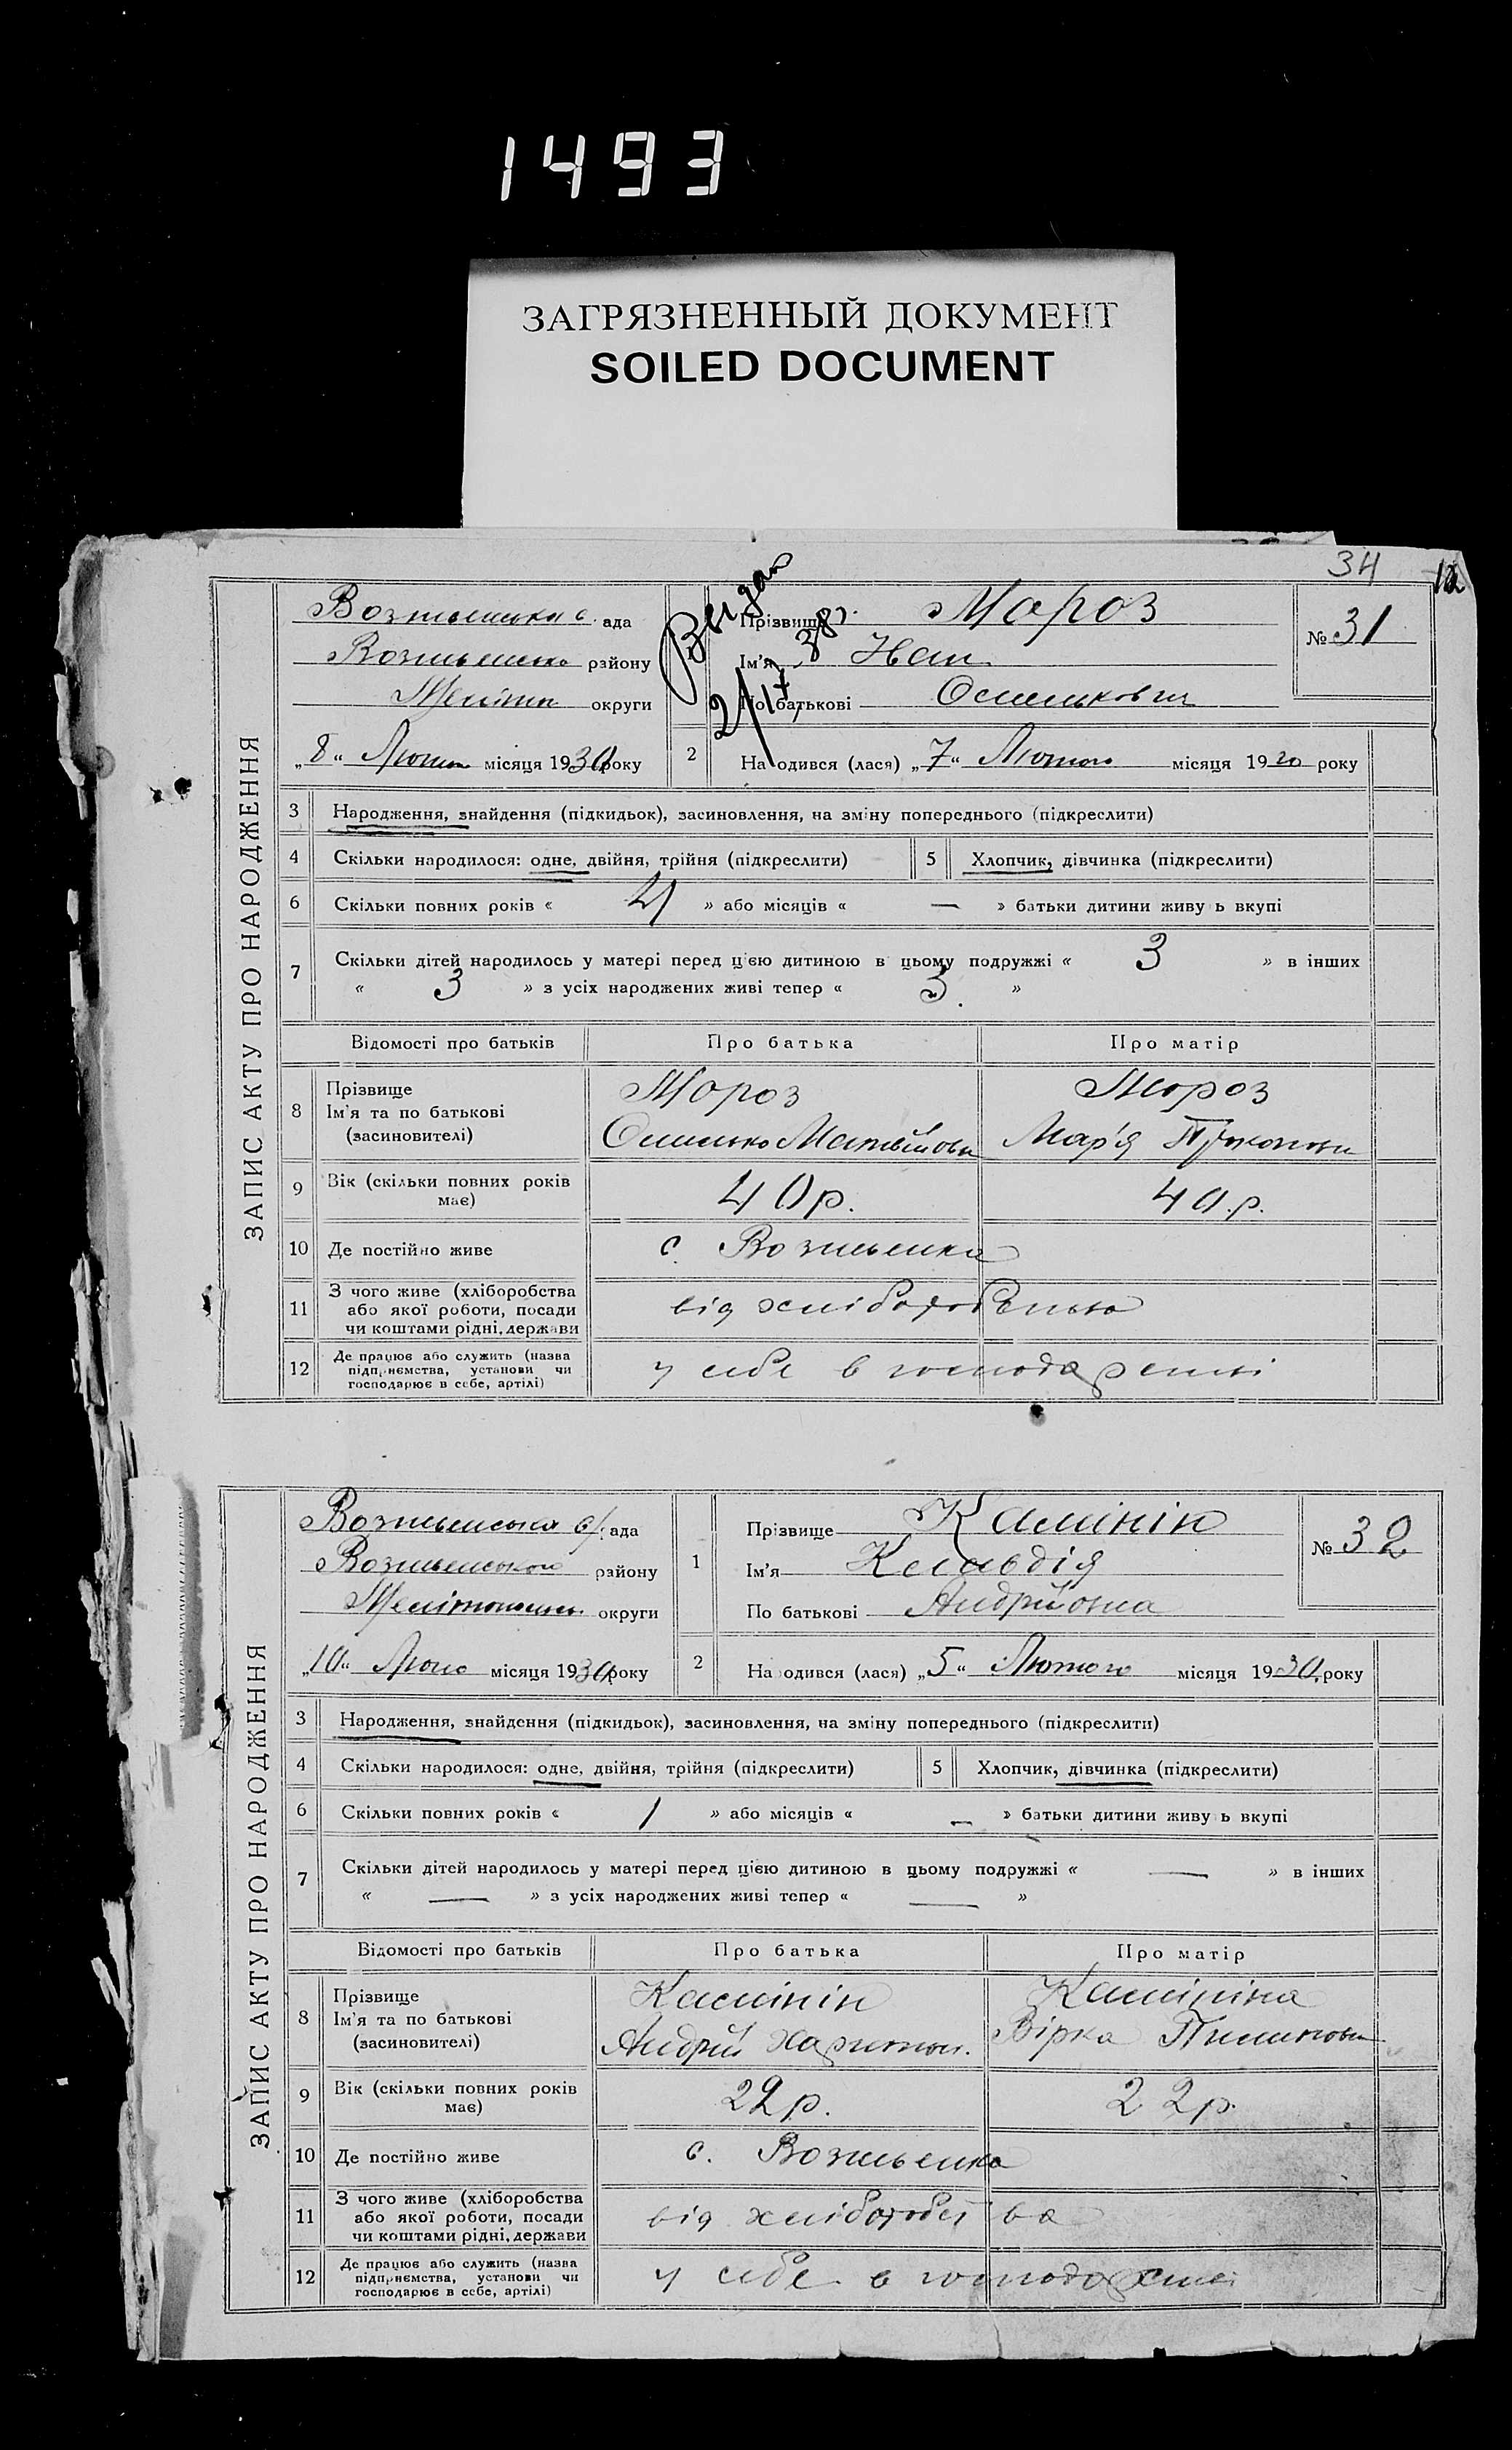 1493
ЗАГРЯЗНЕННЫЙ ДОКУМЕНТ
SOILED DOCUMENT
34
ЗАПИС АКТУ ПРО НАРОДЖЕННЯ
ада
району
округи
„8“ місяця 1930 року
Видан
2/17 38г.
Прізвище Мороз
Ім'я Іван
По батькові
№ 31
2 На одився (лася) „7“ Лютого місяця 1930 року
3 Народження, знайдення (підкидьок), засиновлення, на зміну попереднього (підкреслити)
4 Скільки народилося: одне, двійня, трійня (підкреслити) 5 Хлопчик, дівчинка (підкреслити)
6 Скільки повних років « 4 » або місяців « — » батьки дитини живу ь вкупі
7 Скільки дітей народилось у матері перед цією дитиною в цьому подружжі « 3 » в інших
« 3 » з усіх народжених живі тепер « 3. »
Відомості про батьків Про батька Про матір
8 Прізвище
Ім'я та по батькові
(засиновителі)
Мороз
Мороз
Мар'я
9 Вік (скільки повних років
має)
40р. 40.р.
10 Де постійно живе с.
11 З чого живе (хліборобства
або якої роботи, посади
чи коштами рідні, держави
від
12 Де працює або служить (назва
підприємства, установи чи
господарює в себе, артілі)
у себе в
ЗАПИС АКТУ ПРО НАРОДЖЕННЯ
ада
району
округи
„10“ місяця 1930 року
1 Прізвище Камінін
Ім'я Клавдія
По батькові Андрійовна
№ 32
2 На одився (лася) „5“ Лютого місяця 1930 року
3 Народження, знайдення (підкидьок), засиновлення, на зміну попереднього (підкреслити)
4 Скільки народилося: одне, двійня, трійня (підкреслити) 5 Хлопчик, дівчинка (підкреслити)
6 Скільки повних років « 1 » або місяців « — » батьки дитини живу ь вкупі
7 Скільки дітей народилось у матері перед цією дитиною в цьому подружжі « — » в інших
« — » з усіх народжених живі тепер « — »
Відомості про батьків Про батька Про матір
8 Прізвище
Ім'я та по батькові
(засиновителі)
Камінін
Андрій
Камініна
Вірка
9 Вік (скільки повних років
має)
22р. 22р.
10 Де постійно живе с.
11 З чого живе (хліборобства
або якої роботи, посади
чи коштами рідні, держави
від
12 Де працює або служить (назва
підприємства, установи чи
господарює в себе, артілі)
у себе в